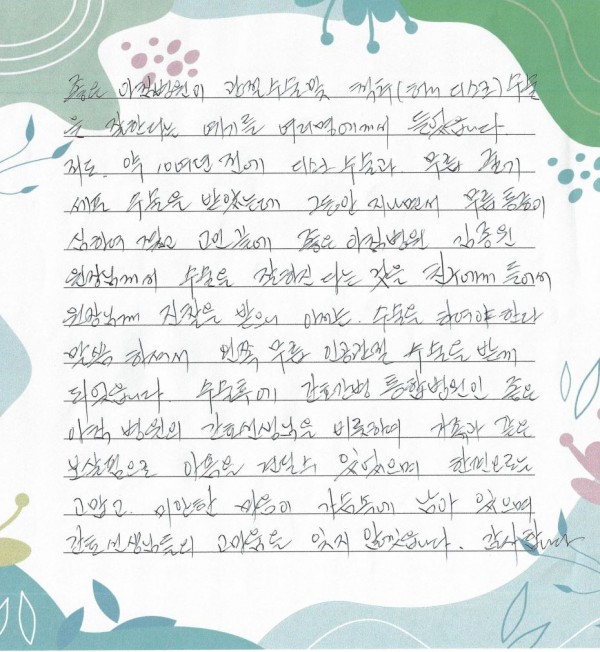 좋은 아침병원이 관절수술및 척추(허리 디스크) 수술
을 잘한다는 얘기를 여러명에게서 들었습니다.
저도. 약 10여년 전에 디스크 수술과. 무릎 줄기
세포 수술을 받았는데 그동안 지내면서 무릎통증이
심하여 고민끝에 좋은 아침병원 김종원
원장님께서 수술을 잘하신다는 것을 친구에게 들어서
원장님께 진찰을 받으니 이제는. 수술을 하여야 한다
말씀 하셔서 왼쪽 무릎 인공관절 수술을 받게
되었습니다. 수술후에 간호간병 통합병원인 좋은
아침 병원의 간호선생님을 비롯하여 가족과 같은
보살핌으로 아픔을 견딜수 있었으며 한편으로는
고맙고. 미안한 마음이 가슴속에 남아 있으며
간호선생님들의 고마움을 잊지 않겠습니다. 감사합니다